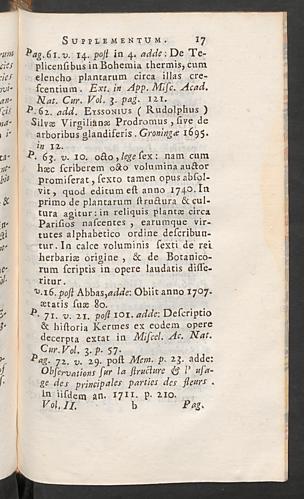 SUPPLEMENTUM. 17
Pag. 61. v. 14. post in 4. adde: De Te-
plicensibus in Bohemia thermis, cum
elencho plantarum circa illas cre-
scentium. Ext. in App. Misc. Acad.
Nat. Cur. Vol. 3. pag. 121.
P. 62. add. EYSSONIUS (Rudolphus)
Silvæ Virgilianæ Prodromus, sive de
arboribus glandiferis. Groningæ 1695.
in 12.
P. 63. v. 10. octo, lege sex: nam cum
hæc scriberem octo volumina auctor
promiserat, sexto tamen opus absol-
vit, quod editum est anno 1740. In
primo de plantarum structura & cul-
tura agitur: in reliquis plantæ circa
Parisios nascentes, earumque vir-
tutes alphabetico ordine describun-
tur. In calce voluminis sexti de rei
herbariæ origine, & de Botanico-
rum scriptis in opere laudatis disse-
ritur.
v. 16. post Abbas, adde: Obiit anno 1707.
ætatis suæ 80.
P. 71. v. 21. post 101. adde: Descriptio
& historia Kermes ex eodem opere
decerpta extat in Miscel. Ac. Nat.
Cur. Vol. 3. p. 57.
Pag. 72. v. 29. post Mem. p. 23. adde:
Observations sur la structure & l' usa-
ge des principales parties des fleurs.
In iisdem an. 1711. p. 210.
Vol. II. b Pag.